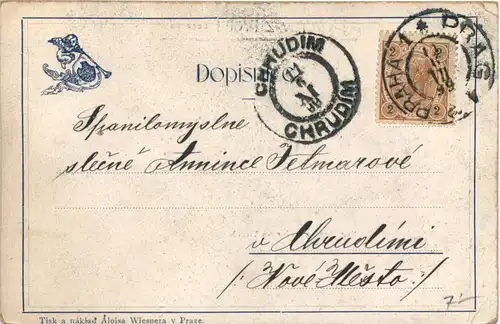 Dopisn
CHRUDIM
CHRUDIM
PRAHA 1 * PRAG
2 2
2 2
Spanilomyslne
slečně Annince Tetmarové
v Chrudimi
/: Nové Město :/
7/-
Tisk a náklad Aloisa Wiesnera v Praze.